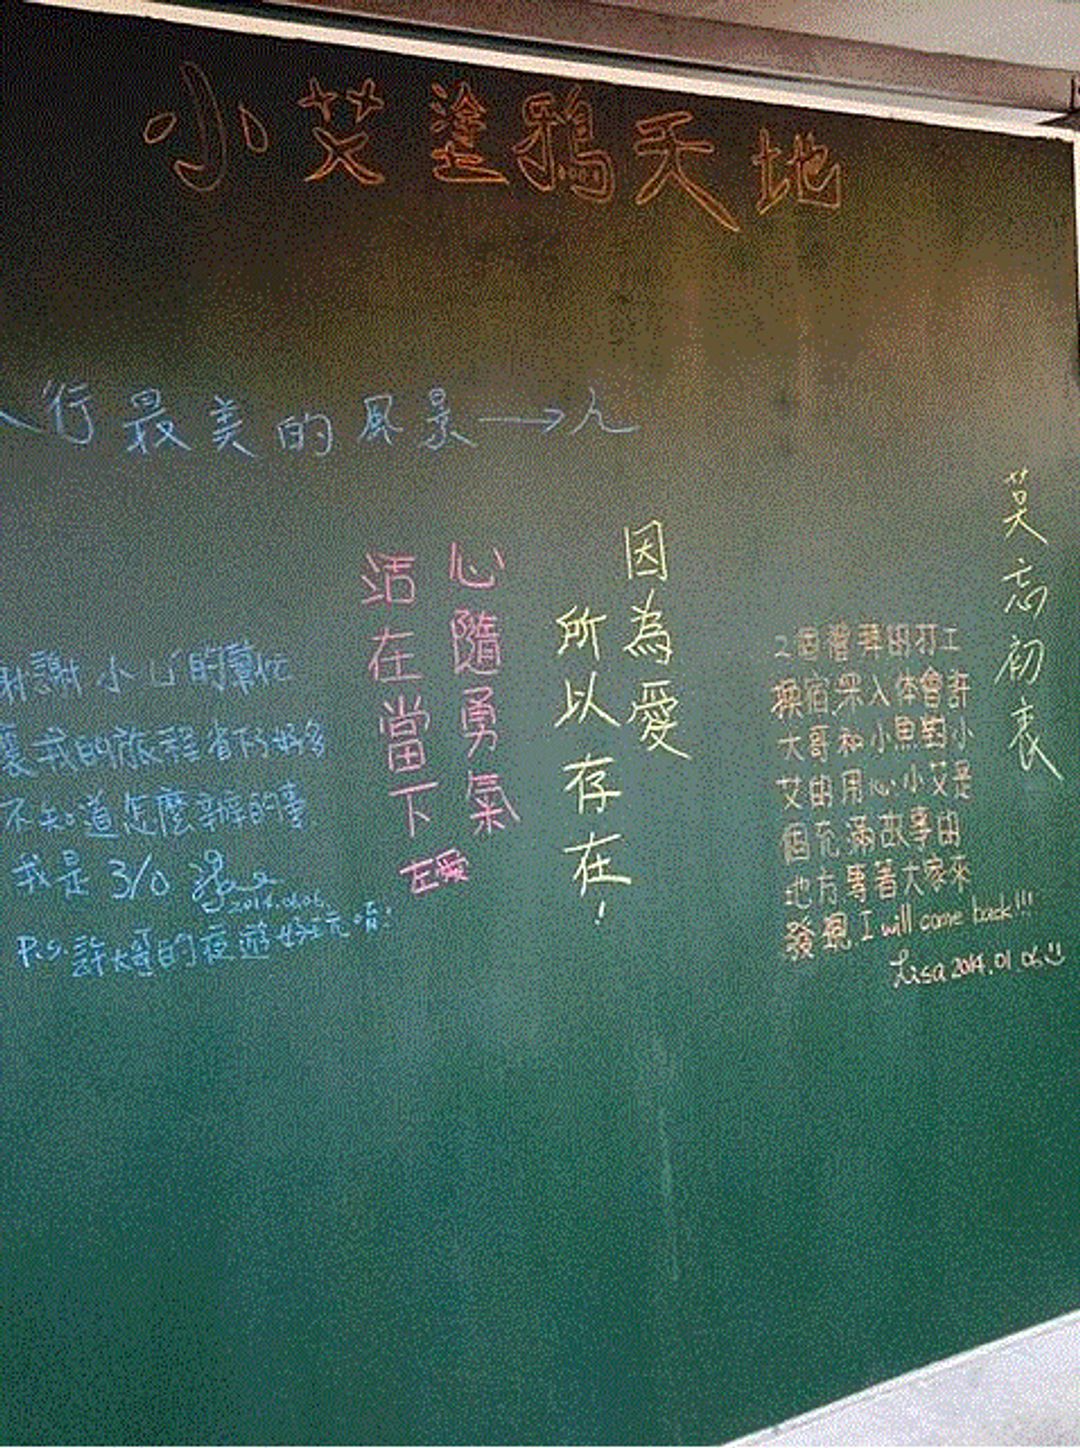 小艾塗鴉天地
行最美的風景→人
莫忘初衷
因為愛
所以存在!
心隨勇氣
活在當下
左愛
謝謝小心的幫忙
我的旅程有好多
不知道怎麼辦的事
我是310
2014.01.06.
P.S.許大哥的夜遊好玩唷!
2個禮拜的打工
換宿深入体會許
大哥和小魚對小
艾的用心小艾是
個充滿故事的
地方專著大家來
發現I will come back!!!
Lisa 2014.01.06.